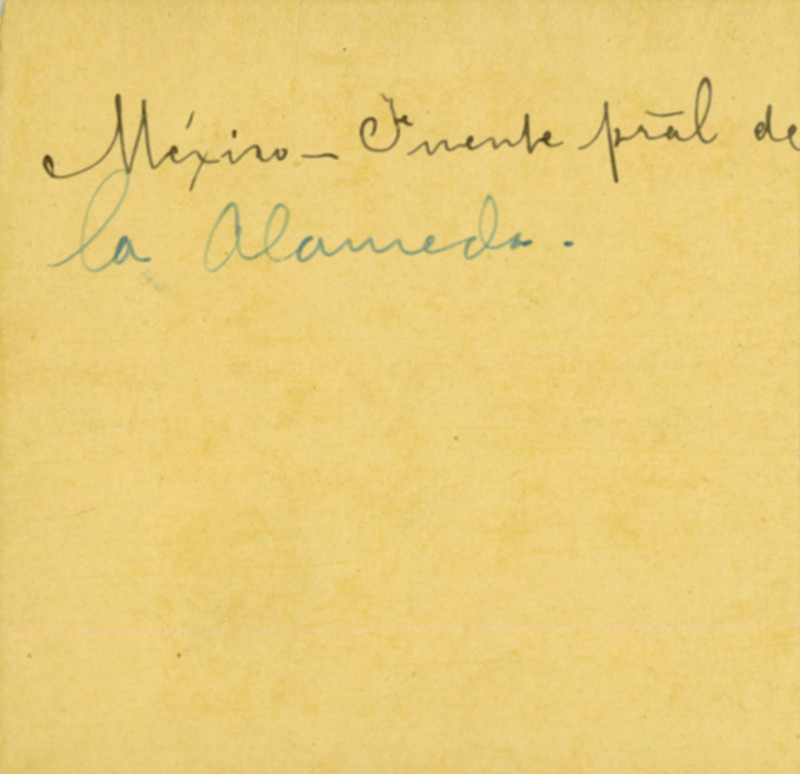 México – Fuente prāl de
la Alameda.